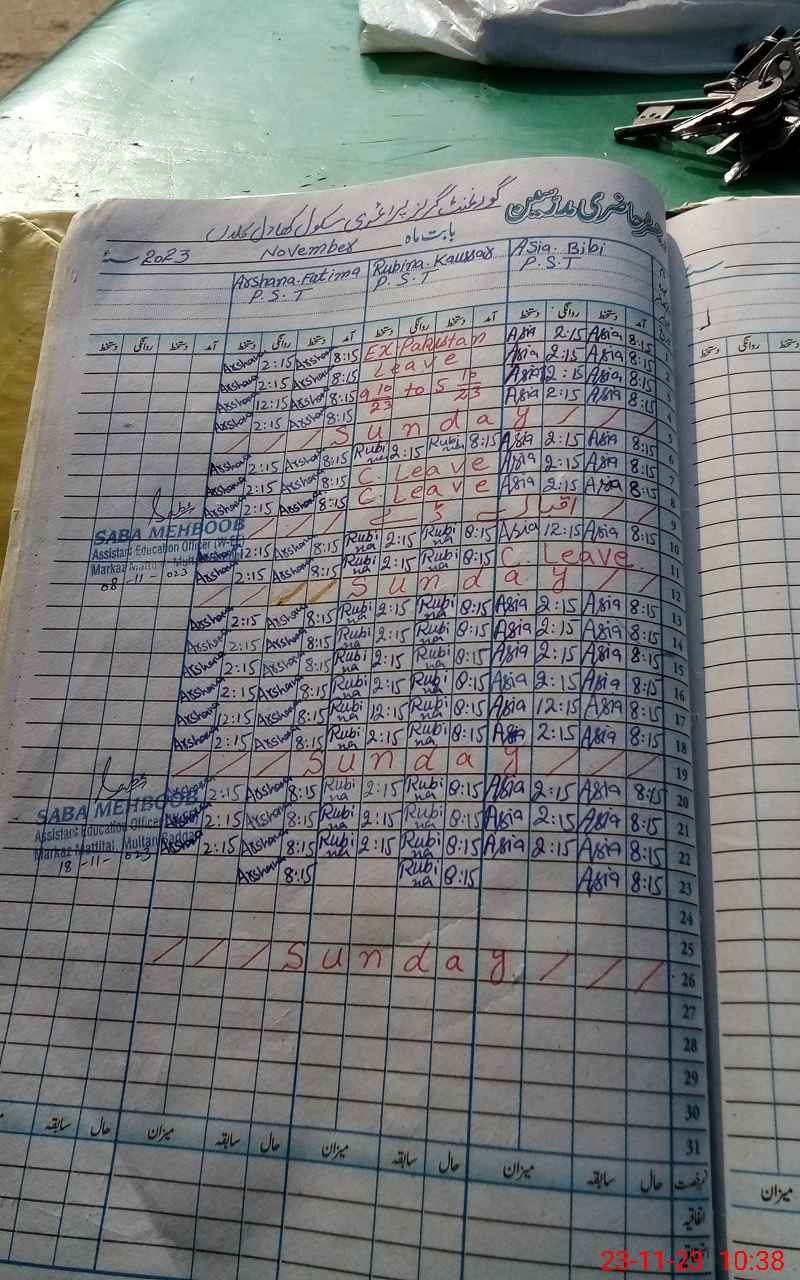 صفر حاضری مدرسین
گورنمنٹ گرلز پرائمری سکول
بابت ماہ November 2023ء
Asia. Bibi Rubina. Kausar Arshana. Fatima
P.S.T P.S.T P.S.T
آمد دستخط روانگی دستخط آمد دستخط روانگی دستخط آمد دستخط روانگی دستخط آمد دستخط روانگی دستخط
1 8:15 Asia 2:15 Asia Ex Pakistan 8:15 Arshana 2:15 Arshana
2 8:15 Asia 2:15 Asia Leave 8:15 Arshana 2:15 Arshana
3 8:15 Asia 12:15 Asia 9 10/23 to 5 12/23 8:15 Arshana 12:15 Arshana
4 8:15 Asia 2:15 Asia 8:15 Arshana 2:15 Arshana
5 / / / Sunday / / /
6 8:15 Asia 2:15 Asia 8:15 Rubina 2:15 Rubina 8:15 Arshana 2:15 Arshana
7 8:15 Asia 2:15 Asia C. Leave 8:15 Arshana 2:15 Arshana
8 8:15 Asia 2:15 Asia C. Leave 8:15 Arshana 2:15 Arshana
9 / / اقبال ڈے / / /
10 8:15 Asia 12:15 Asia 8:15 Rubina 2:15 Rubina 8:15 Arshana 12:15 Arshana
11 C. Leave 8:15 Rubina 2:15 Rubina 8:15 Arshana 2:15 Arshana
12 / / / Sunday / / / /
13 8:15 Asia 2:15 Asia 8:15 Rubina 2:15 Rubina 8:15 Arshana 2:15 Arshana
14 8:15 Asia 2:15 Asia 8:15 Rubina 2:15 Rubina 8:15 Arshana 2:15 Arshana
15 8:15 Asia 2:15 Asia 8:15 Rubina 2:15 Rubina 8:15 Arshana 2:15 Arshana
16 8:15 Asia 2:15 Asia 8:15 Rubina 2:15 Rubina 8:15 Arshana 2:15 Arshana
17 8:15 Asia 12:15 Asia 8:15 Rubina 12:15 Rubina 8:15 Arshana 12:15 Arshana
18 8:15 Asia 2:15 Asia 8:15 Rubina 2:15 Rubina 8:15 Arshana 2:15 Arshana
19 / / / Sunday / / / /
20 8:15 Asia 2:15 Asia 8:15 Rubina 2:15 Rubina 8:15 Arshana 2:15 Arshana
21 8:15 Asia 2:15 Asia 8:15 Rubina 2:15 Rubina 8:15 Arshana 2:15 Arshana
22 8:15 Asia 2:15 Asia 8:15 Rubina 2:15 Rubina 8:15 Arshana 2:15 Arshana
23 8:15 Asia 8:15 Rubina 8:15 Arshana
24
25
26 / / / Sunday / / / /
27
28
29
30
31
رخصت حال سابقہ میزان حال سابقہ میزان حال سابقہ میزان حال سابقہ
اتفاقیہ
SABA MEHBOOB
Assistant Education Officer (W-EE)
Markaz
08-11-023
SABA MEHBOOB
Assistant Education Officer
Markaz Mattital, Multan Saddar
18-11-023
دستخط روانگی دستخط
میزان
23-11-23 10:38